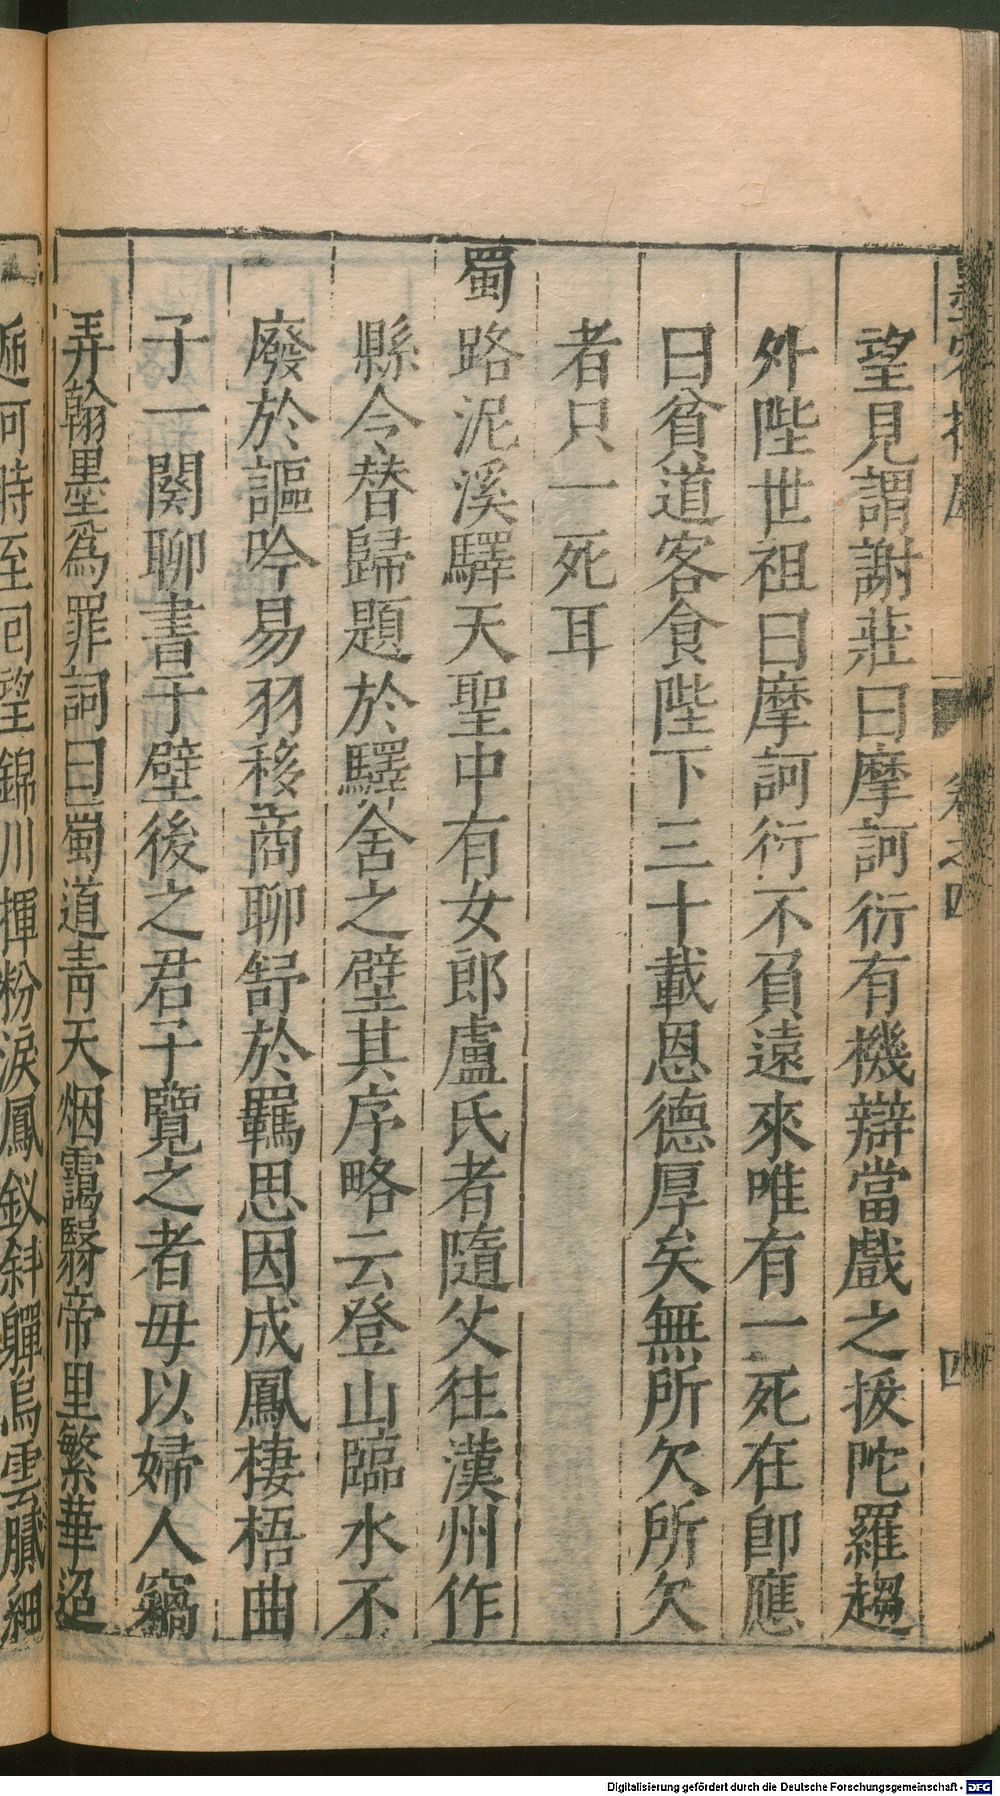 望見謂謝莊曰摩訶衍有機辯當戲之拔陀羅趨
外陛世祖曰摩訶衍不負遠來唯有一死在即應
曰貧道客食陛下三十載恩德厚矣無所欠所欠
者只一死耳
蜀路泥溪驛天聖中有女郎盧氏者隨父往漢州作
縣令替歸題於驛舍之壁其序略云登山臨水不
廢於謳吟易羽移商聊舒於羈思因成鳳棲梧曲
子一闋聊書于壁後之君子覽之者毋以婦人竊
弄翰墨爲罪詞曰蜀道青天烟靄翳帝里繁華迢
遞何時至回望錦川揮粉淚鳳釵斜嚲烏雲膩細
卷之四
四
Digitalisierung gefördert durch die Deutsche Forschungsgemeinschaft - DFG